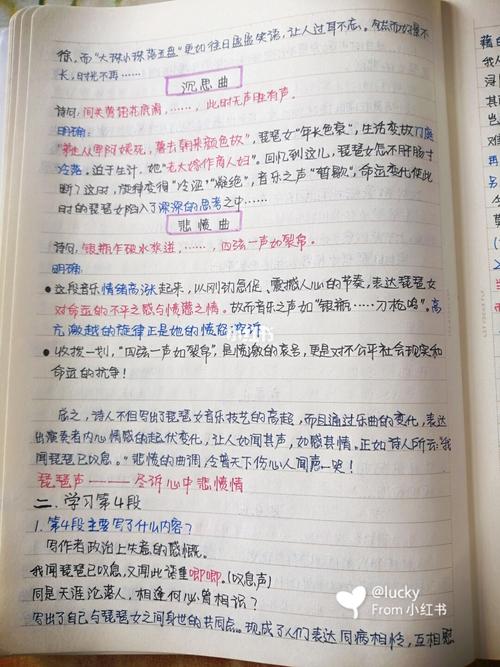 徐,而"大珠小珠落玉盘"更如往日盈盈笑语,让人过耳不忘。然而好景不
长,时光不再……
沉思曲
诗句:间关莺语花底滑,……,此时无声胜有声。
明确:
"弟走从军阿姨死,暮去朝来颜色故",琵琶女"年长色衰",生活变故门庭
冷落。迫于生计,她"老大嫁作商人妇"。回忆到这儿,琵琶女怎不肝肠寸
断?这时,旋律变得"冷涩""凝绝",音乐之声"暂歇"。命运变化使此
时的琵琶女陷入了深深的思考之中……
悲愤曲
诗句:银瓶乍破水浆迸,……,四弦一声如裂帛。
明确:
●这段音乐情绪高涨起来,以刚劲急促、震撼人心的节奏,表达琵琶女
对命运的不平之感与愤懑之情。故而音乐之声如"银瓶……刀枪鸣"。高
亢激越的旋律正是她的愤怒控诉
●收拨一划,"四弦一声如裂帛",是愤激的哀号,更是对不公平社会现实和
命运的抗争!
总之,诗人不但写出了琵琶女音乐技艺的高超,而且通过乐曲的变化,表达
出演奏者内心情感的起伏变化,让人如闻其声,如感其情。正如诗人所云:"我
闻琵琶已叹息。"悲愤的曲调,令普天下伤心人闻声一哭!
琵琶声———尽诉心中悲愤情
二、学习第4段
1.第4段主要写了什么内容?
写作者政治上失意的感慨。
我闻琵琶已叹息,又闻此语重唧唧。(叹息声)
同是天涯沦落人,相逢何必曾相识?
写出了自己与琵琶女之间身世的共同点。现成了人们表达同病相怜,互相慰
@lucky
From 小红书